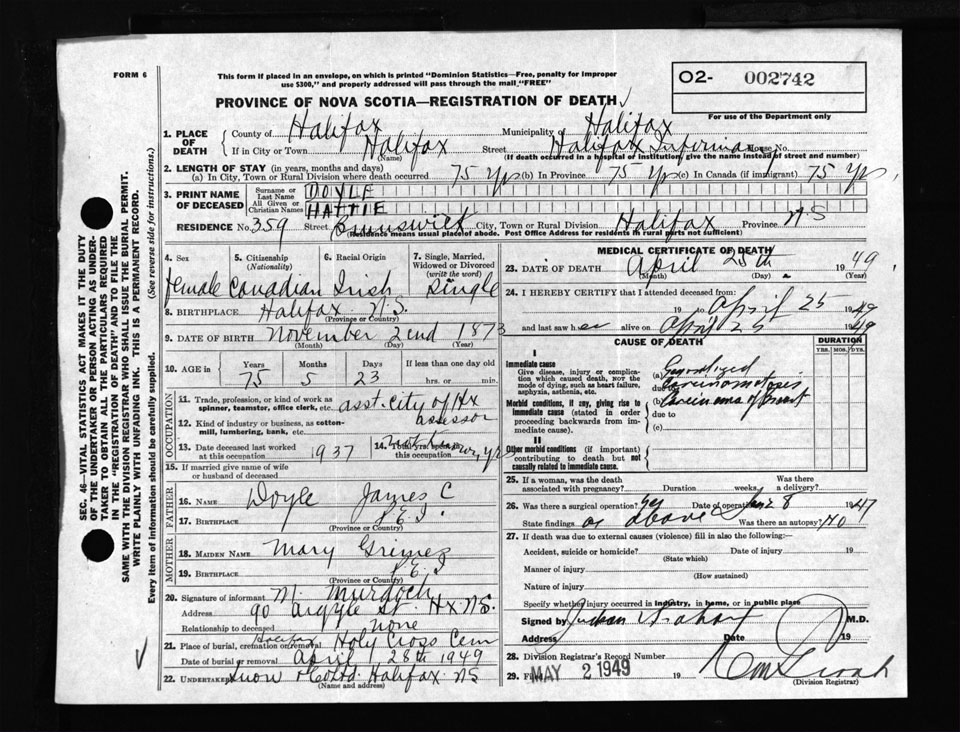 FORM 6
This form if placed in an envelope, on which is printed "Dominion Statistics—Free, penalty for improper
use $300," and properly addressed will pass through the mail "FREE"
O2- 002742
For use of the Department only
PROVINCE OF NOVA SCOTIA—REGISTRATION OF DEATH
SEC. 46—VITAL STATISTICS ACT MAKES IT THE DUTY
OF THE UNDERTAKER OR PERSON ACTING AS UNDER-
TAKER TO OBTAIN ALL THE PARTICULARS REQUIRED
IN THE "REGISTRATION OF DEATH" AND TO FILE THE
SAME WITH THE DIVISION REGISTRAR WHO SHALL ISSUE THE BURIAL PERMIT.
WRITE PLAINLY WITH UNFADING INK. THIS IS A PERMANENT RECORD.
Every item of information should be carefully supplied. (See reverse side for instructions.)
1. PLACE OF DEATH
County of Halifax Municipality Halifax
If in City or Town Halifax Street Halifax Infirmary House No.
(Name) (If death occurred in a hospital or institution, give the name instead of street and number)
2. LENGTH OF STAY (in years, months and days)
(a) In City, Town or Rural Division where death occurred 75 yrs (b) In Province 75 yrs (c) In Canada (if immigrant) 75 yrs
3. PRINT NAME OF DECEASED
Surname or Last Name DOYLE
All Given or Christian Names HATTIE
RESIDENCE No. 359 Street Brunswick City, Town or Rural Division Halifax Province N.S
(Residence means usual place of abode. Post Office Address for residents in rural parts not sufficient)
4. Sex 5. Citizenship (Nationality) 6. Racial Origin 7. Single, Married, Widowed or Divorced (write the word)
female Canadian Irish Single
8. BIRTHPLACE Halifax N.S.
(Province or Country)
9. DATE OF BIRTH November 22nd 1873
(Month) (Day) (Year)
10. AGE in Years Months Days If less than one day old
75 5 23 hrs. or min.
OCCUPATION
11. Trade, profession, or kind of work as
spinner, teamster, office clerk, etc. asst. City of Hx
assessor
12. Kind of industry or business, as cotton-
mill, lumbering, bank, etc.
13. Date deceased last worked
at this occupation 1937
14. Total yrs. spent in
this occupation
15. If married give name of wife
or husband of deceased
FATHER
16. NAME Doyle James C
17. BIRTHPLACE P.E.I.
(Province or Country)
MOTHER
18. MAIDEN NAME Mary Grimez
19. BIRTHPLACE P.E.I
(Province or Country)
20. Signature of informant M. Murdoch
Address 90 Argyle St. Hx N.S.
Relationship to deceased none
21. Place of burial, cremation or removal Halifax Holy Cross Cem
Date of burial or removal April 28th 1949
22. Undertaker Snow & Co Ltd. Halifax NS
(Name and address)
MEDICAL CERTIFICATE OF DEATH
23. DATE OF DEATH April 25th 1949
(Month) (Day) (Year)
24. I HEREBY CERTIFY that I attended deceased from:
19 to April 25 1949
and last saw her alive on April 25 1949
CAUSE OF DEATH DURATION
YRS. MOS. DYS.
I
Immediate cause
Give disease, injury or complica-
tion which caused death, NOT the
mode of dying, such as heart failure,
asphyxia, asthenia, etc.
(a) Generalized
due to Carcinomatosis
Morbid conditions, if any, giving rise to
immediate cause (stated in order
proceeding backwards from im-
mediate cause).
(b) Carcinoma of breast
due to
(c)
II
Other morbid conditions (if important)
contributing to death but not
causally related to immediate cause.
25. If a woman, was the death
associated with pregnancy? Duration weeks. Was there
a delivery?
26. Was there a surgical operation? yes Date of operation 8 1947
State findings as above Was there an autopsy? No
27. If death was due to external causes (violence) fill in also the following:—
Accident, suicide or homicide? Date of injury 19
(State which)
Manner of injury
(How sustained)
Nature of injury
Specify whether injury occurred in industry, in home, or in public place
Signed by M.D.
Address Date 19
28. Division Registrar's Record Number
29. Filed MAY 2 1949 19
(Division Registrar)